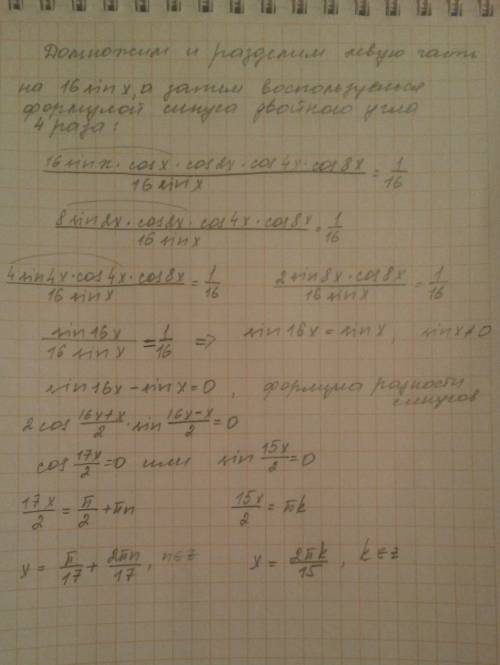 Домножим и разделим левую часть
на 16 sin x, а затем воспользуемся
формулой синуса двойного угла
4 раза:
(16 sin x · cos x · cos 2x · cos 4x · cos 8x)/(16 sin x) = 1/16
(8 sin 2x · cos 2x · cos 4x · cos 8x)/(16 sin x) = 1/16
(4 sin 4x · cos 4x · cos 8x)/(16 sin x) = 1/16 (2 sin 8x · cos 8x)/(16 sin x) = 1/16
(sin 16x)/(16 sin x) = 1/16 => sin 16x = sin x, sin x ≠ 0
sin 16x - sin x = 0, формула разности
синусов
2 cos (16x+x)/2 · sin (16x-x)/2 = 0
cos 17x/2 = 0 или sin 15x/2 = 0
17x/2 = π/2 + πn 15x/2 = πk
x = π/17 + 2πn/17, n∈z x = 2πk/15, k∈z